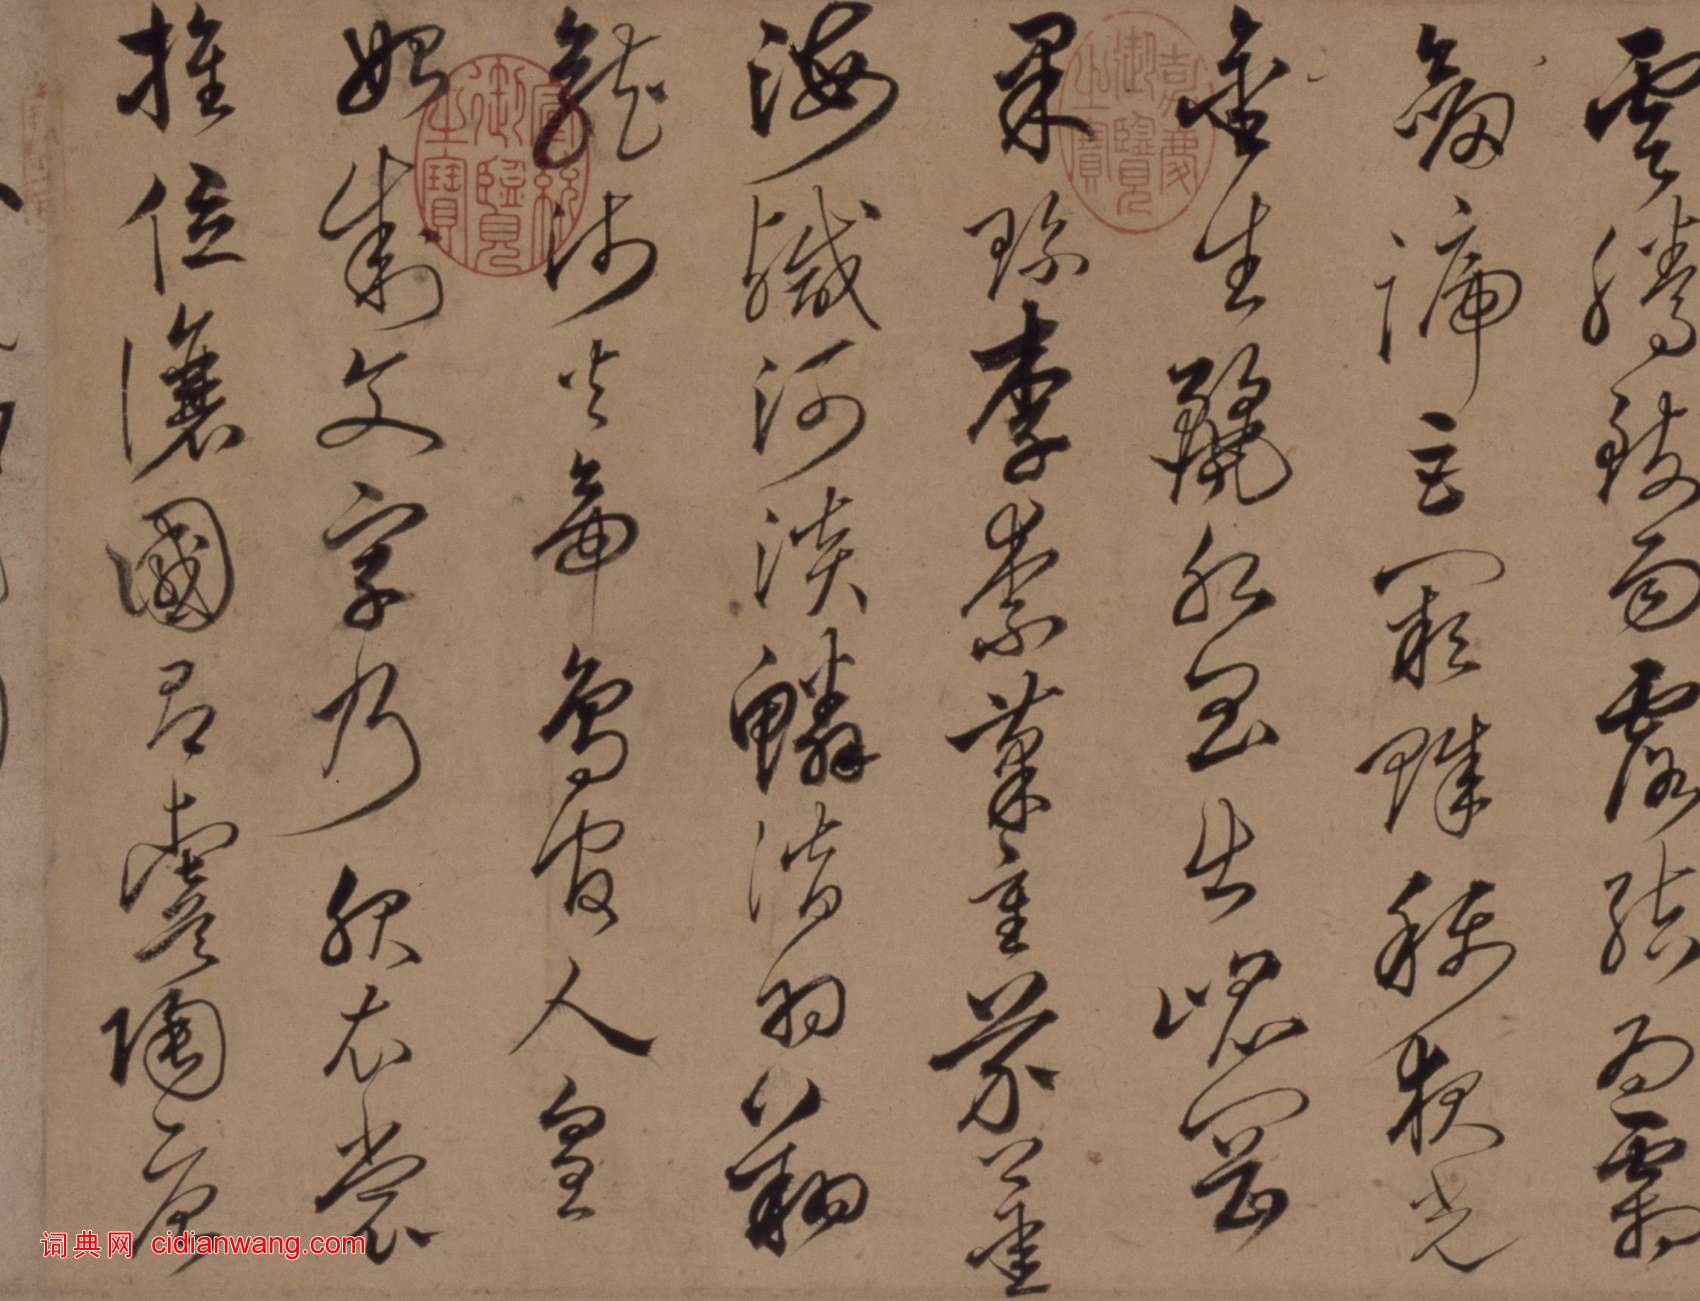 雲騰致雨露結為霜
劍號巨闕珠稱夜光
金生麗水玉出崑岡
果珍李柰菜重芥薑
海鹹河淡鱗潛羽翔
龍師火帝鳥官人皇
始制文字乃服衣裳
推位讓國有虞陶唐
嘉慶御覽之寶
乾隆御覽之寶
词典网 cidianwang.com